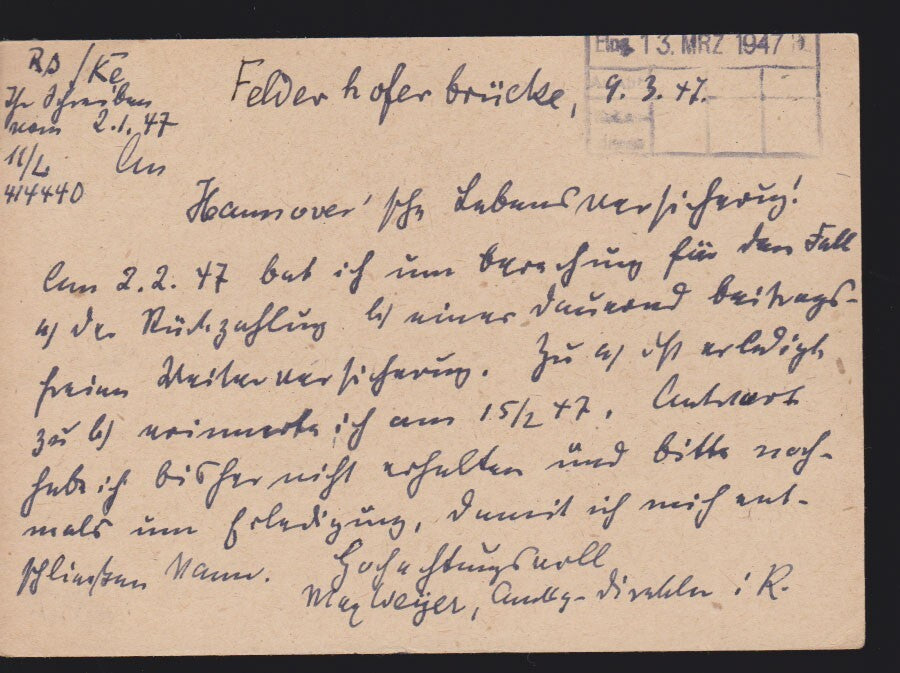 Eing. 13. MRZ 1947
RD/Ke
Ihr Schreiben
vom 2.1.47
11/L
414440
Felderhoferbrücke, 9.3.47.
An
Hannover'sche Lebensversicherung!
Am 2.2.47 bat ich um Berechnung für den Fall
a) der Rückzahlung b) einer dauernd beitrags-
freien Weiterversicherung. Zu a) ist erledigt
zu b) erinnerte ich am 15/2 47. Antwort
habe ich bisher nicht erhalten und bitte noch-
mals um Erledigung, damit ich mich ent-
schließen kann. Hochachtungsvoll
Max Weyer, direktor i R.